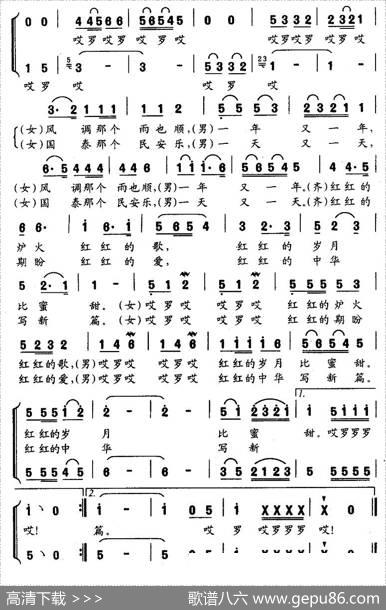 0 0 | 4 4 5 6 6 | 5 6 5 4 5 | 0 0 | 5 3 3 2 | 2 3 2 1
哎罗 哎罗 哎罗 哎罗哎罗 哎罗
1 5 | 3 - | 3 - | 5 3 3 2 | 1 5
哎罗 哎 哎罗 哎
3· 2 1 1 1 | 1 1 2 | 5 5 5 3 | 2 3 2 1 1
(女)风 调那个 雨也顺,(男)一 年 又一年,
(女)国 泰那个 民安乐,(男)一 天 又一天,
6· 5 4 4 4 | 4 4 6 | 1 1 1· 6 | 5 6 4 5 | 4 4· 5
(女)风 调那个 雨也顺,(男)一 年 又一年。(齐)红红的
(女)国 泰那个 民安乐,(男)一 天 又一天。(齐)红红的
6 6· | i 6· i | 5 6 5 4 | 3 2· 3 | 5 2 3
炉火 红红的 歌, 红红的 岁月
期盼 红红的 爱, 红红的 中华
5 2· 1 | 1 - | 5 1 2 | 5 1 2 | 5 5 5 1 2
比蜜 甜。(女)哎罗哎 哎罗哎 红红的炉火
写新 篇。(女)哎罗哎 哎罗哎 红红的期盼
5 2 3 2 | 1 4 6 | 1 4 6 | 5 5 5 6 5 | 5 6 5 4 5
红红的歌,(男)哎罗哎 哎罗哎 红红的岁月 比蜜甜。
红红的爱,(男)哎罗哎 哎罗哎 红红的中华 写新篇。
5 5 5 i 2 | 2 - | 2 - | 5 i | 2 3 2 1 | 1. i 5 i i i
红红的岁 月 比 蜜 甜。哎罗罗罗
红红的中 华 写 新
5 5 5 4 5 | 6 - | 6 - | 3 5 | 2 1 2 3 | 5 5 5 5 5
i 0 :‖ 2. i - | i - | i 0 5 | i X X X X | X 0 0 ‖
哎! 篇。 哎 罗 哎罗罗罗 哎!
5 0 :‖ 5 - | 5 - | 5 0 5 | i X X X X | X 0 0 ‖
高清下载 >>> 歌谱八六 www.gepu86.com